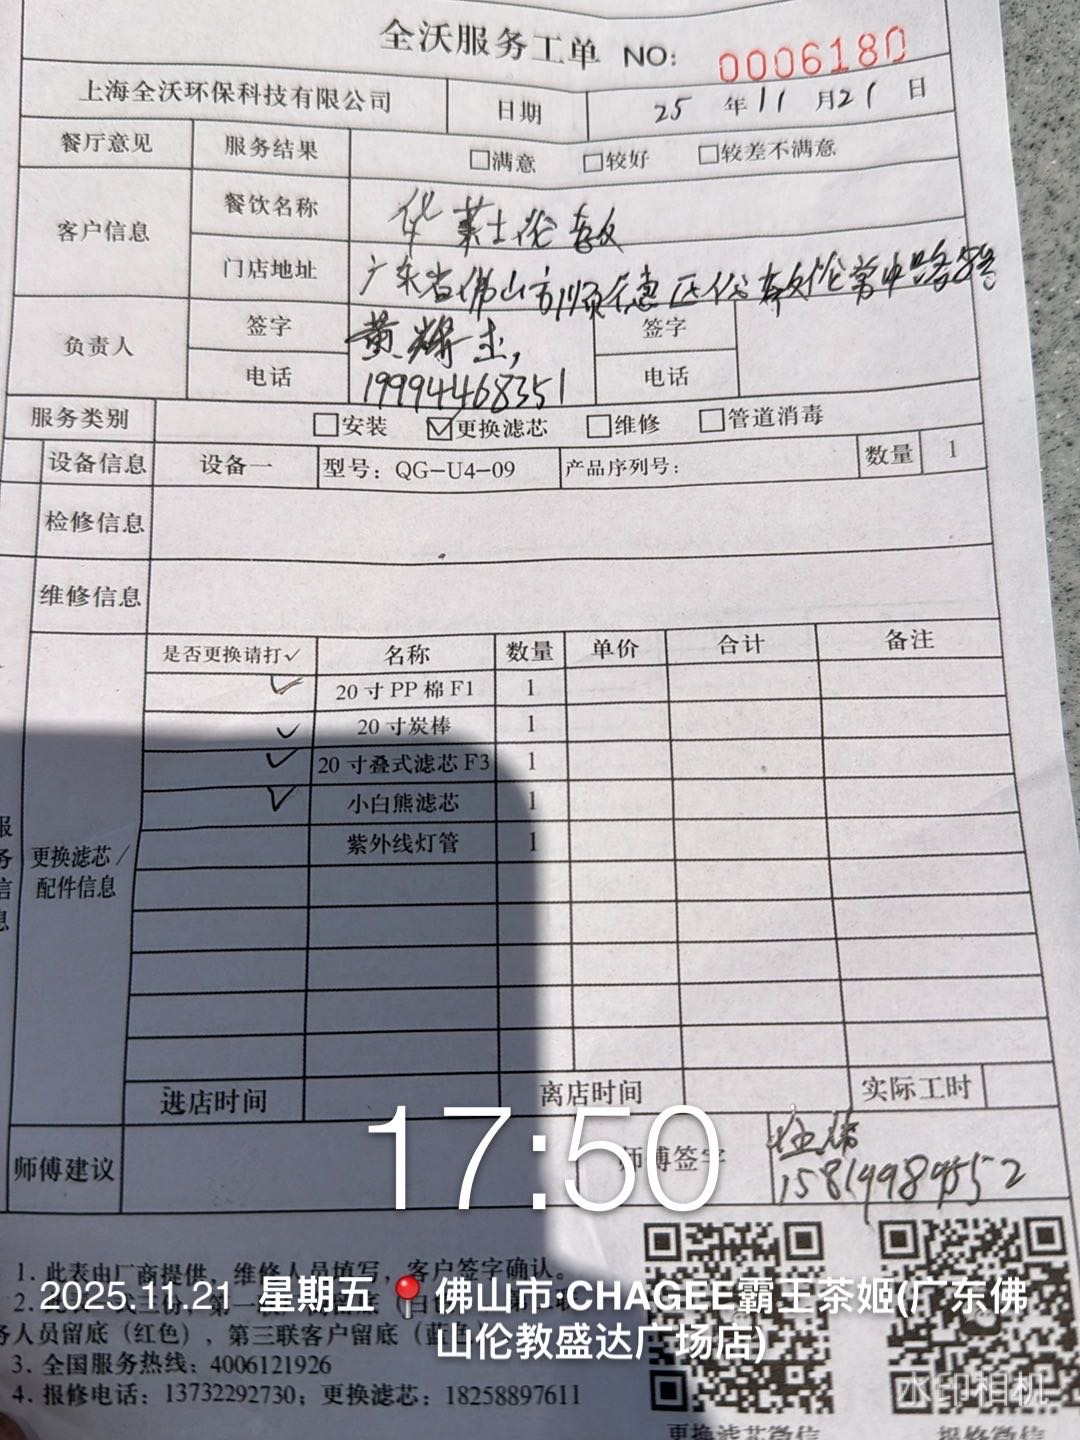 全沃服务工单 NO: 0006180
上海全沃环保科技有限公司 日期 25 年 11 月 21 日
餐厅意见 服务结果 □满意 □较好 □较差不满意
客户信息 餐饮名称 华莱士伦教
门店地址 广东省佛山市顺德区伦教伦常中路
负责人 签字 黄辉 签字
电话 19994468351 电话
服务类别 □安装 ☑更换滤芯 □维修 □管道消毒
设备信息 设备一 型号: QG-U4-09 产品序列号: 数量 1
检修信息
维修信息
是否更换请打✓ 名称 数量 单价 合计 备注
✓ 20寸PP棉F1 1
✓ 20寸炭棒 1
✓ 20寸叠式滤芯F3 1
✓ 小白熊滤芯 1
紫外线灯管 1
更换滤芯/
配件信息
服
务
信
息
进店时间 离店时间 实际工时
17:50
师傅建议 师傅签字
15819989552
1. 此表由厂商提供, 维修人员填写, 客户签字确认。
2.
务人员留底(红色), 第三联客户留底(蓝色)
3. 全国服务热线: 4006121926
4. 报修电话: 13732292730; 更换滤芯: 18258897611
更换滤芯微信 报修微信
2025.11.21 星期五 佛山市·CHAGEE霸王茶姬(广东佛
山伦教盛达广场店)
水印相机